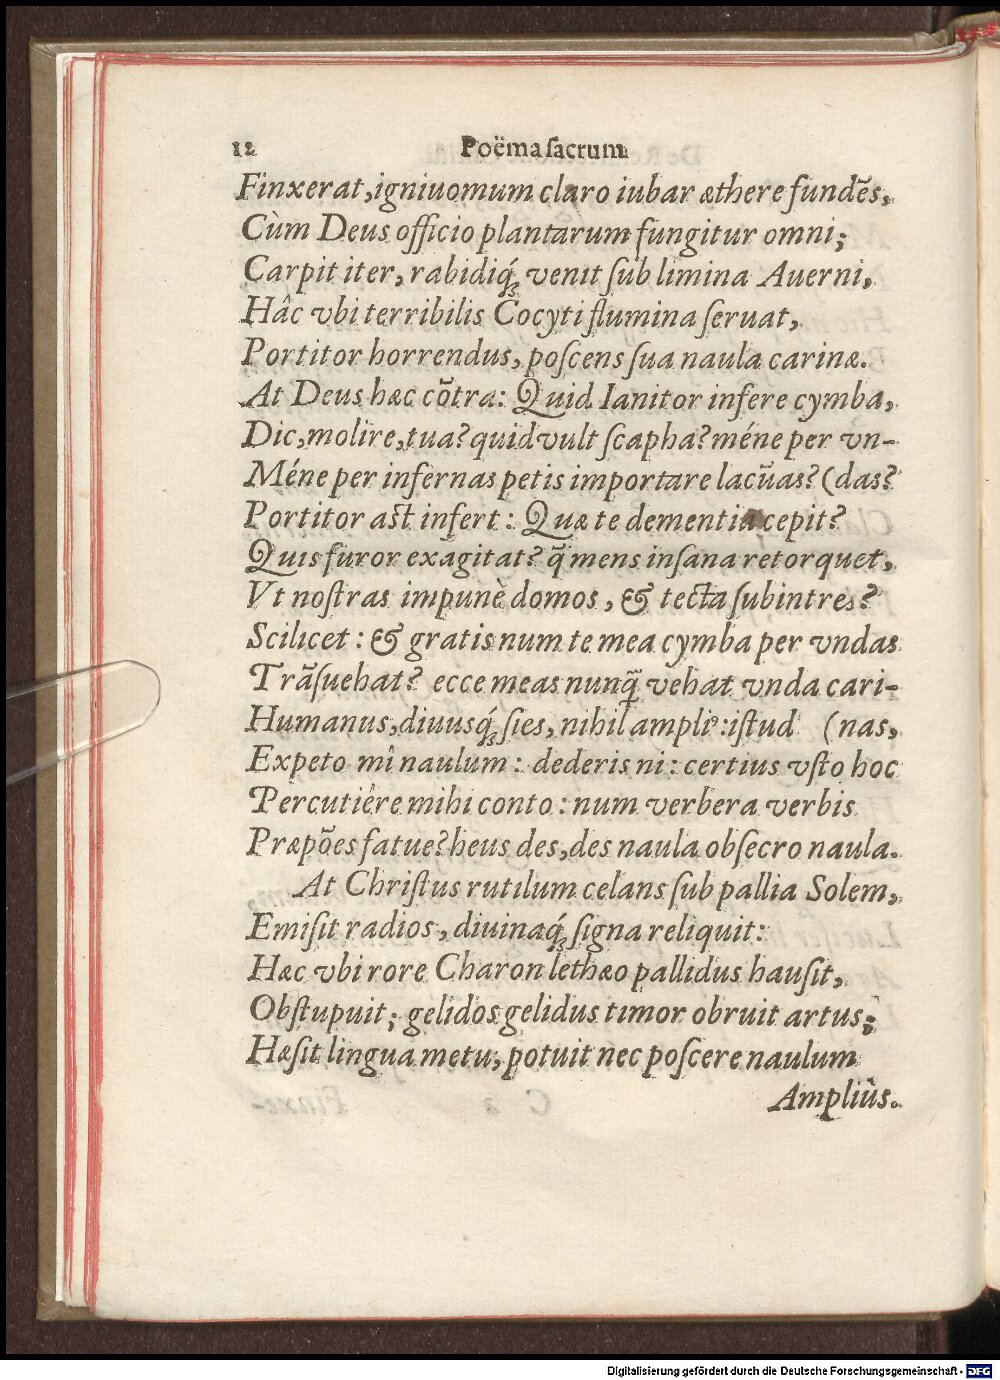 12 Poëma sacrum
Finxerat, igniuomum claro iubar æthere fundẽs,
Cùm Deus officio plantarum fungitur omni;
Carpit iter, rabidiq́; venit ſub limina Auerni,
Hâc vbi terribilis Cocyti flumina ſeruat,
Portitor horrendus, poſcens ſua naula carinæ.
At Deus hæc cõtra: Quid Ianitor infere cymba,
Dic, molire, tua? quid vult ſcapha? méne per vn-
Méne per infernas petis importare lacũas? (das?
Portitor aſt infert: Quæ te dementia cepit?
Quis furor exagitat? q̃ mens inſana retorquet,
Vt noſtras impunè domos, & tecta ſubintres?
Scilicet: & gratis num te mea cymba per vndas
Trãſuehat? ecce meas nunq̃ vehat vnda cari-
Humanus, diuusq́; ſies, nihil ampliꝰ: iſtud (nas,
Expeto mî naulum: dederis ni: certius vſto hoc
Percutiêre mihi conto: num verbera verbis
Præpões fatue? heus des, des naula obſecro naula.
At Chriſtus rutilum celans ſub pallia Solem,
Emiſit radios, diuinaq́; ſigna reliquit:
Hæc vbi rore Charon lethæo pallidus hauſit,
Obſtupuit; gelidos gelidus timor obruit artus;
Hæſit lingua metu, potuit nec poſcere naulum
Ampliùs.
Digitalisierung gefördert durch die Deutsche Forschungsgemeinschaft - DFG